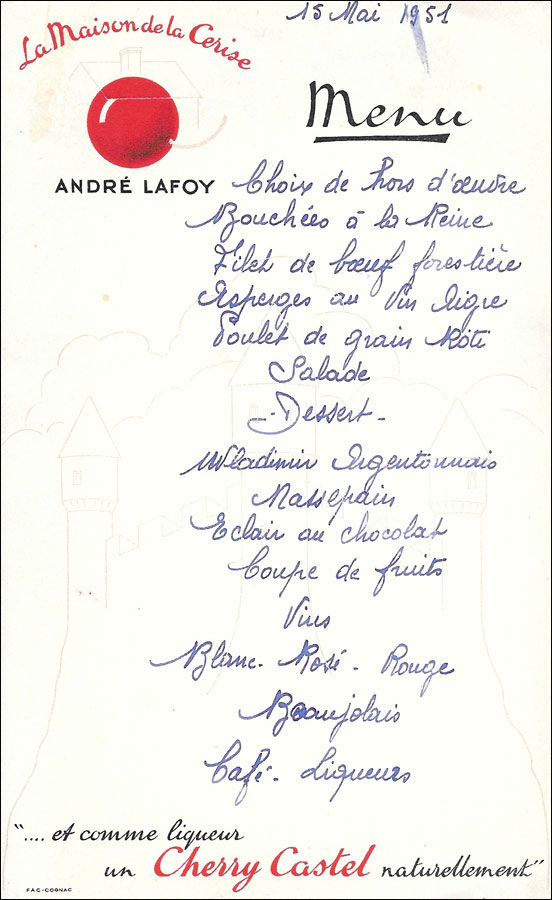 15 Mai 1951
La Maison de la Cerise
Menu
ANDRÉ LAFOY
Choix de hors d'œuvre
Bouchées à la Reine
Filet de bœuf forestière
Asperges au Vin Aigre
Poulet de grain Rôti
Salade
- Dessert -
Wladimir Argentonnais
Massepain
Eclair au chocolat
Coupe de fruits
Vins
Blanc - Rosé - Rouge
Beaujolais
Café - Liqueurs
".... et comme liqueur
un Cherry Castel naturellement"
FAC-COGNAC